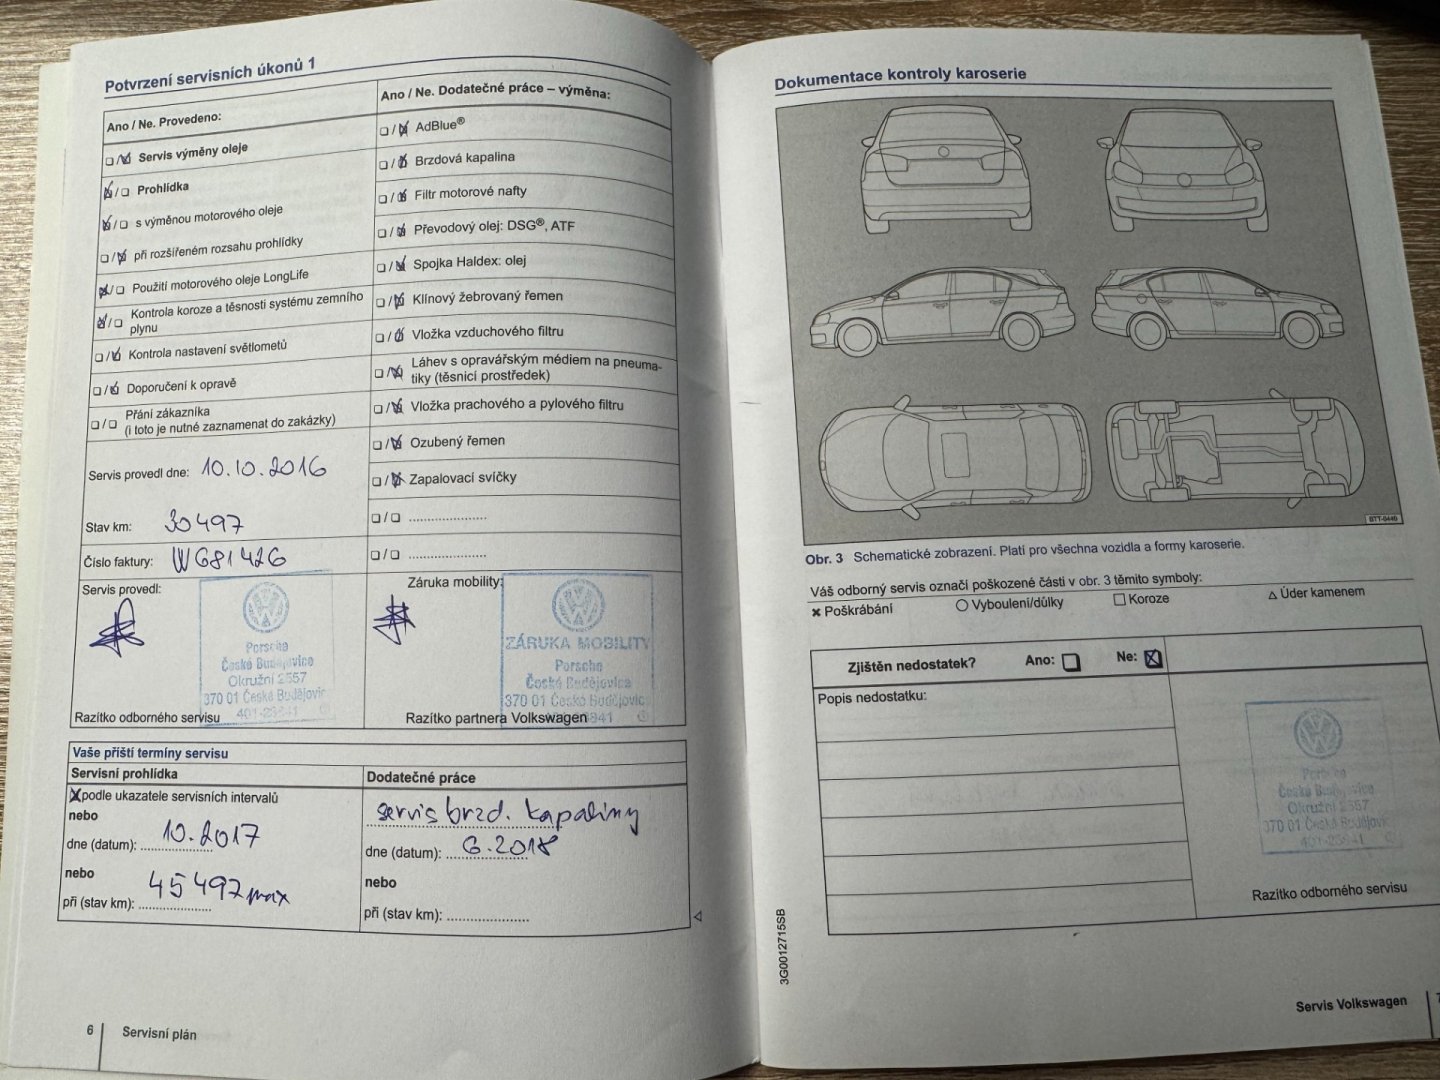 Potvrzení servisních úkonů 1
Ano / Ne. Provedeno:
Servis výměny oleje
Prohlídka
s výměnou motorového oleje
při rozšířeném rozsahu prohlídky
Použití motorového oleje LongLife
Kontrola koroze a těsnosti systému zemního
plynu
Kontrola nastavení světlometů
Doporučení k opravě
Přání zákazníka
(i toto je nutné zaznamenat do zakázky)
Servis provedl dne: 10.10.2016
Stav km: 30497
Číslo faktury: W681426
Servis provedl:
Porsche
České Budějovice
Okružní 2557
370 01 České Budějovic
Razítko odborného servisu
Ano / Ne. Dodatečné práce – výměna:
AdBlue®
Brzdová kapalina
Filtr motorové nafty
Převodový olej: DSG®, ATF
Spojka Haldex: olej
Klínový žebrovaný řemen
Vložka vzduchového filtru
Láhev s opravářským médiem na pneuma-
tiky (těsnicí prostředek)
Vložka prachového a pylového filtru
Ozubený řemen
Zapalovací svíčky
Záruka mobility:
ZÁRUKA MOBILITY
Porsche
České Budějovice
370 01 České Budějovic
Razítko partnera Volkswagen
Vaše příští termíny servisu
Servisní prohlídka
podle ukazatele servisních intervalů
nebo
dne (datum): 10.2017
nebo
při (stav km): 45 497 max
Dodatečné práce
servis brzd. kapaliny
dne (datum): 6.2018
nebo
při (stav km):
6 Servisní plán
Dokumentace kontroly karoserie
BTT-0449
Obr. 3 Schematické zobrazení. Platí pro všechna vozidla a formy karoserie.
Váš odborný servis označí poškozené části v obr. 3 těmito symboly:
× Poškrábání ○ Vyboulení/důlky □ Koroze △ Úder kamenem
Zjištěn nedostatek? Ano: Ne:
Popis nedostatku:
Porsche
České Budějovice
Okružní 2557
370 01 České Budějovic
Razítko odborného servisu
3G0012715SB
Servis Volkswagen